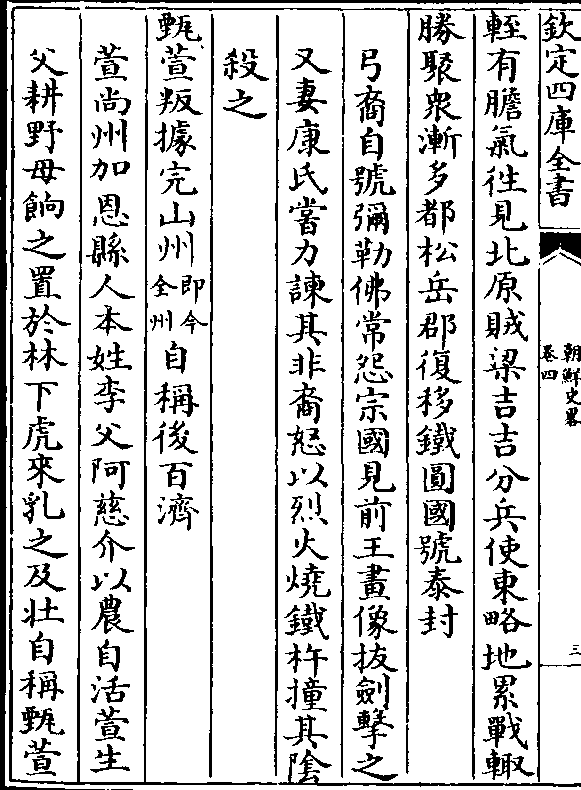 欽定四庫全書
朝鮮史略
卷四
三
輊有膽氣徃見北原賊梁吉吉分兵使東略地累戰輙
勝聚衆漸多都松岳郡復移鐵圓國號泰封
弓裔自號彌勒佛常怨宗國見前王畫像拔劍擊之
又妻康氏嘗力諫其非裔怒以烈火燒鐵杵撞其陰
殺之
甄萱叛據完山州即今全州自稱後百濟
萱尚州加恩縣人本姓李父阿慈介以農自活萱生
父耕野母餉之置於林下虎來乳之及壮自稱甄萱